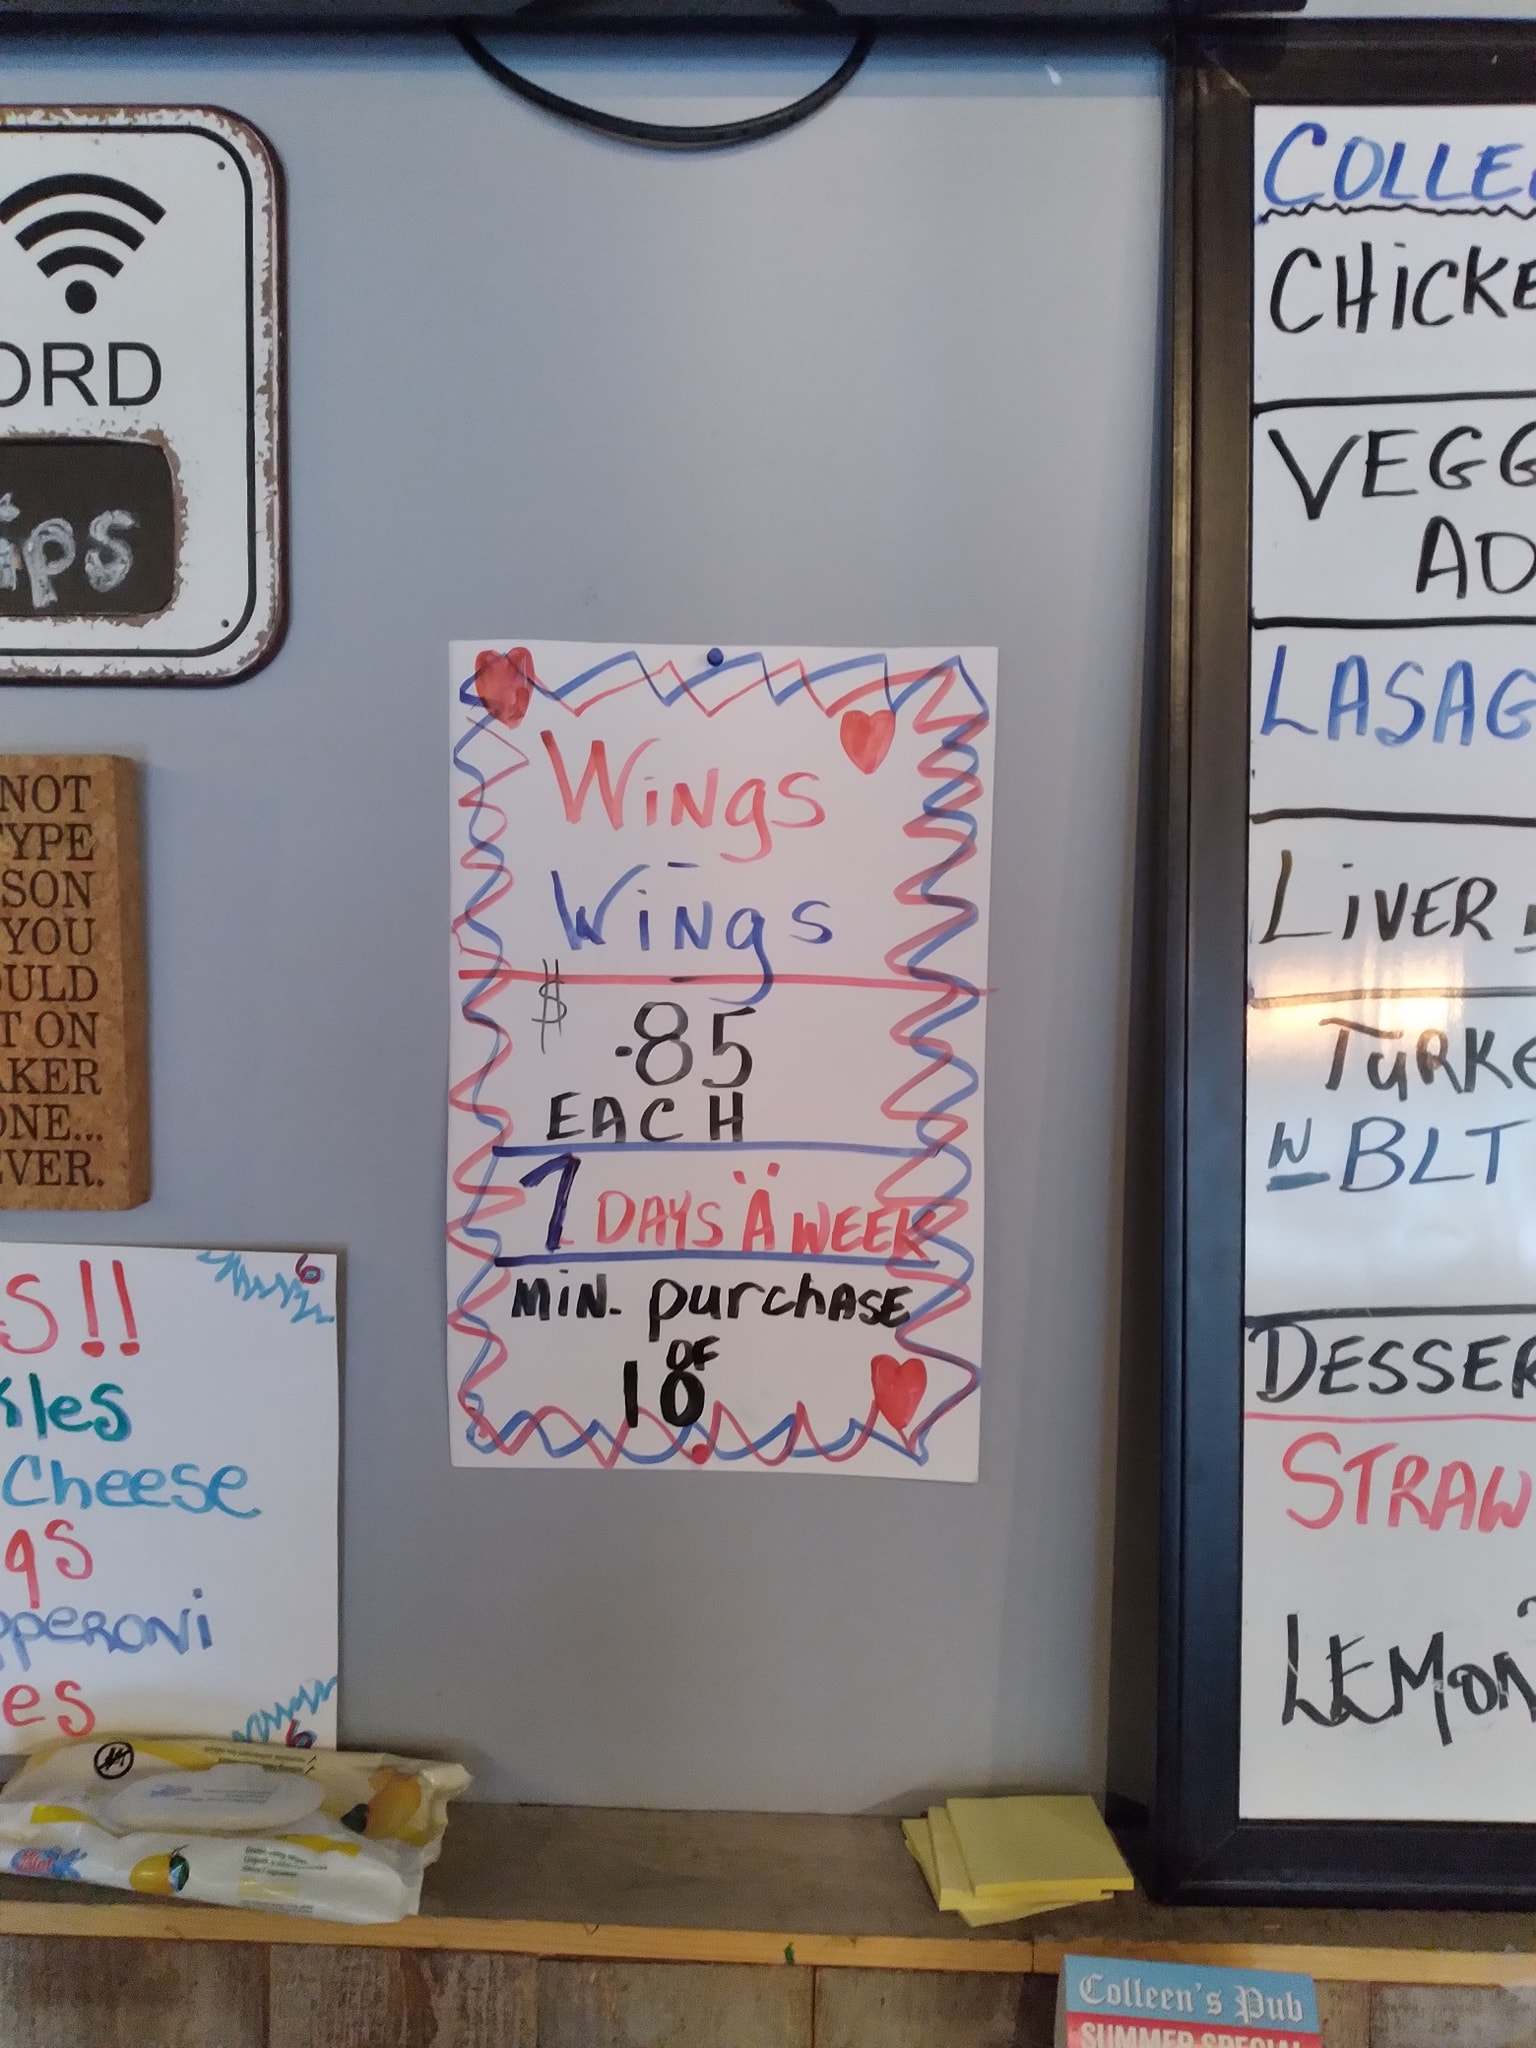 ORD
ips
NOT
TYPE
SON
YOU
OULD
T ON
AKER
ONE...
EVER.
S!!
kles
Cheese
gs
pperoni
es
Wings
Wings
$ .85
EACH
7 DAYS A WEEK
MiN. purchase
OF
10
COLLE
CHICKE
VEGG
AD
LASAG
LiVER
TURKE
W BLT
DESSER
STRAW
LEMON
Colleen's Pub
SUMMER SPECIAL